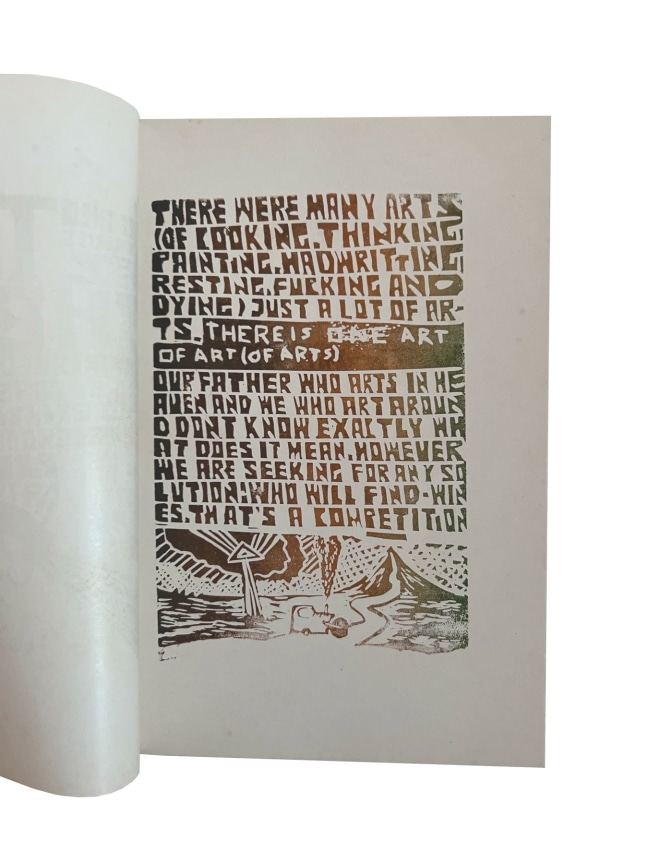 THERE WERE MANY ARTS
(OF COOKING,THINKING
PAINTING,HADWRITTING
RESTING,FUCKING AND
DYING) JUST A LOT OF AR-
TS. THERE IS ONE ART
OF ART (OF ARTS)
OUR FATHER WHO ARTS IN HE
AVEN AND WE WHO ART AROUN
D DONT KNOW EXACTLY WH
AT DOES IT MEAN. HOWEVER
WE ARE SEEKING FOR ANY SO
LUTION: WHO WILL FIND-WIN
ES. THAT'S A COMPETITION